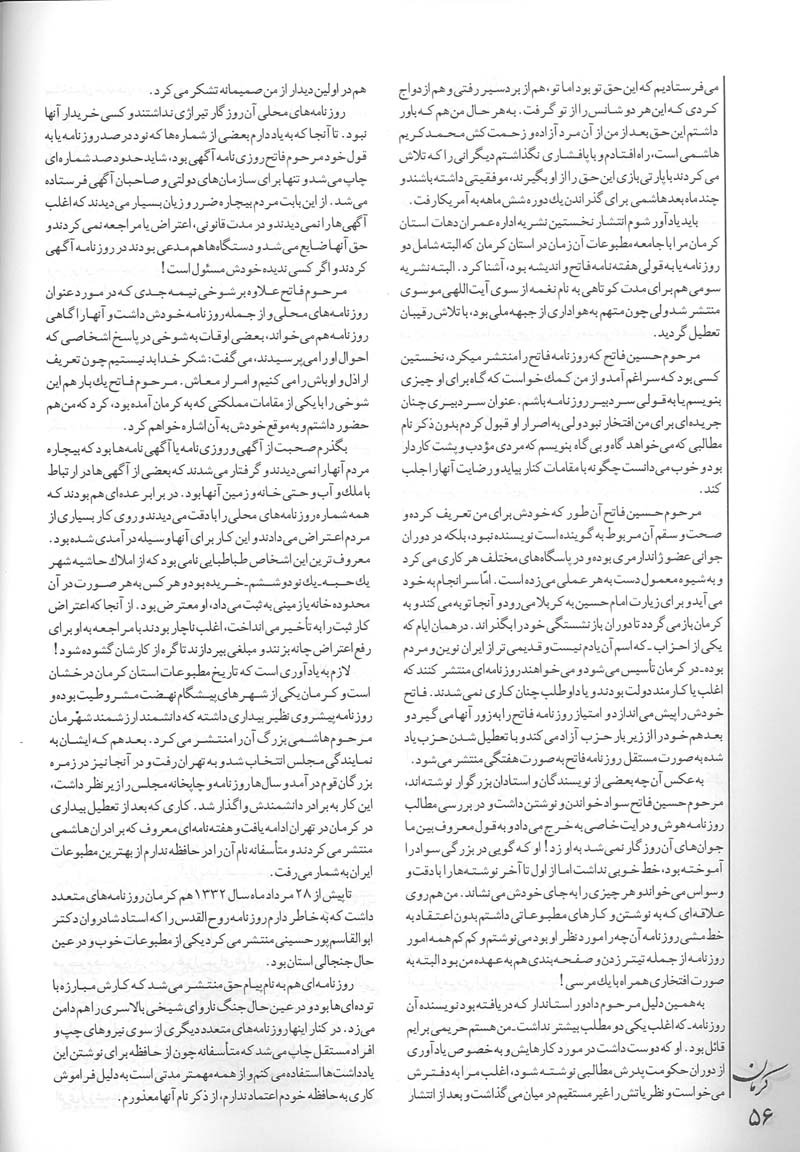 می‌فرستادیم که این حق تو بود اما تو، هم از بردسیر رفتی و هم ازدواج
کردی که این هر دو شانس را از تو گرفت. به‌هر حال من هم که باور
داشتم این حق بعد از من از آن مرد آزاده و زحمت‌کش محمد کریم
هاشمی است، راه افتادم و با پافشاری نگذاشتم دیگرانی را که تلاش
می‌کردند با پارتی بازی این حق را از او بگیرند، موفقیتی داشته باشند و
چند ماه بعد هاشمی برای گذراندن یك دوره شش ماهه به آمریکا رفت.
باید یادآور شوم انتشار نخستین نشریه اداره عمران دهات استان
کرمان مرا با جامعه مطبوعات آن زمان در استان کرمان که البته شامل دو
روزنامه یا به قولی هفته‌نامه فاتح و اندیشه بود، آشنا کرد. البته نشریه
سومی هم برای مدت کوتاهی به نام نغمه از سوی آیت‌اللهی موسوی
منتشر شد ولی چون متهم به هواداری از جبهه ملی بود، با تلاش رقیبان
تعطیل گردید.
مرحوم حسین فاتح که روزنامه فاتح را منتشر میکرد، نخستین
کسی بود که سراغم آمد و از من کمك خواست که گاه برای او چیزی
بنویسم یا به قولی سردبیر روزنامه باشم. عنوان سردبیری چنان
جریده‌ای برای من افتخار نبود ولی به اصرار او قبول کردم بدون ذکر نام
مطالبی که می‌خواهد گاه و بی‌گاه بنویسم که مردی مؤدب و پشت کاردار
بود و خوب می‌دانست چگونه با مقامات کنار بیاید و رضایت آنها را جلب
کند.
مرحوم حسین فاتح آن طور که خودش برای من تعریف کرده و
صحت و سقم آن مربوط به گوینده است نویسنده نبود، بلکه در دوران
جوانی عضو ژاندارمری بوده و در پاسگاه‌های مختلف هر کاری می‌کرد
و به شیوه معمول دست به هر عملی می‌زده است. امّا سرانجام به خود
می‌آید و برای زیارت امام حسین به کربلا می‌رود و آنجا توبه می‌کند و به
کرمان باز می‌گردد تا دوران بازنشستگی خود را بگذراند. در همان ایام که
یکی از احزاب-که اسم آن یادم نیست و قدیمی تر از ایران نوین و مردم
بوده-در کرمان تأسیس می‌شود و می‌خواهند روزنامه‌ای منتشر کنند که
اغلب یا کارمند دولت بودند و یا داوطلب چنان کاری نمی‌شدند. فاتح
خودش را پیش می‌اندازد و امتیاز روزنامه فاتح را به زور آنها می‌گیرد و
بعد هم خود را از زیر بار حزب آزاد می‌کند و با تعطیل شدن حزب یاد
شده به صورت مستقل روزنامه فاتح به صورت هفتگی منتشر می‌شود.
به عکس آن چه بعضی از نویسندگان و استادان بزرگوار نوشته‌اند،
مرحوم حسین فاتح سواد خواندن و نوشتن داشت و در بررسی مطالب
روزنامه هوش و درایت خاصی به خرج می‌داد و به قول معروف بین ما
جوان‌های آن روزگار نمی‌شد به او زد! او که گویی در بزرگی سواد را
آموخته بود، خط خوبی نداشت اما از اول تا آخر نوشته‌ها را با دقت و
وسواس می‌خواند و هر چیزی را به جای خودش می‌نشاند. من هم روی
علاقه‌ای که به نوشتن و کارهای مطبوعاتی داشتم بدون اعتقاد به
خط مشی روزنامه آن چه را مورد نظر او بود می‌نوشتم و کم کم همه امور
روزنامه از جمله تیتر زدن و صفحه بندی هم به عهده من بود البته به
صورت افتخاری همراه با یك مرسی!
به همین دلیل مرحوم دادور استاندار که دریافته بود نویسنده آن
روزنامه-که اغلب یکی دو مطلب بیشتر نداشت-من هستم حریمی برایم
قائل بود. او که دوست داشت در مورد کارهایش و به خصوص یادآوری
از دوران حکومت پدرش مطالبی نوشته شود، اغلب مرا به دفترش
می‌خواست و نظریاتش را غیر مستقیم در میان می‌گذاشت و بعد از انتشار
هم در اولین دیدار از من صمیمانه تشکر می‌کرد.
روزنامه‌های محلی آن روزگار تیراژی نداشتند و کسی خریدار آنها
نبود. تا آنجا که به یاد دارم بعضی از شماره‌ها که نود در صد روزنامه یا به
قول خود مرحوم فاتح روزی نامه آگهی بود، شاید حدود صد شماره‌ای
چاپ می‌شد و تنها برای سازمان‌های دولتی و صاحبان آگهی فرستاده
می‌شد. از این بابت مردم بیچاره ضرر و زیان بسیار می‌دیدند که اغلب
آگهی‌ها را نمی‌دیدند و در مدت قانونی، اعتراض یا مراجعه نمی‌کردند و
حق آنها ضایع می‌شد و دستگاه‌ها هم مدعی بودند در روزنامه آگهی
کردند و اگر کسی ندیده خودش مسئول است!
مرحوم فاتح علاوه بر شوخی نیمه جدی که در مورد عنوان
روزنامه‌های محلی و از جمله روزنامه خودش داشت و آنها را گاهی
روزنامه هم می‌خواند، بعضی اوقات به شوخی در پاسخ اشخاصی که
احوال او را می‌پرسیدند، می‌گفت: شکر خدا بد نیستیم چون تعریف
اراذل و اوباش را می‌کنیم و امرار معاش. مرحوم فاتح یك بار هم این
شوخی را با یکی از مقامات مملکتی که به کرمان آمده بود، کرد که من هم
حضور داشتم و به موقع خودش به آن اشاره خواهم کرد.
بگذرم صحبت از آگهی و روزی نامه یا آگهی نامه‌ها بود که بیچاره
مردم آنها را نمی‌دیدند و گرفتار می‌شدند که بعضی از آگهی‌ها در ارتباط
با ملك و آب و حتی خانه و زمین آنها بود. در برابر عده‌ای هم بودند که
همه شماره روزنامه‌های محلی را با دقت می‌دیدند و روی کار بسیاری از
مردم اعتراض می‌دادند و این کار برای آنها وسیله درآمدی شده بود.
معروف ترین این اشخاص طباطبایی نامی بود که از املاك حاشیه شهر
یك حبه-یك نود و ششم-خریده بود و هر کس به هر صورت در آن
محدوده خانه یا زمینی به ثبت می‌داد، او معترض بود. از آنجا که اعتراض
کار ثبت را به تأخیر می‌انداخت، اغلب ناچار بودند با مراجعه به او برای
رفع اعتراض چانه بزنند و مبلغی بپردازند تا گره از کارشان گشوده شود!
لازم به یادآوری است که تاریخ مطبوعات استان کرمان درخشان
است و کرمان یکی از شهرهای پیشگام نهضت مشروطیت بوده و
روزنامه پیشروی نظیر بیداری داشته که دانشمند ارزشمند شهرمان
مرحوم هاشمی بزرگ آن را منتشر می‌کرد. بعد هم که ایشان به
نمایندگی مجلس انتخاب شد و به تهران رفت و در آنجا نیز در زمره
بزرگان قوم درآمد و سال‌ها روزنامه و چاپخانه مجلس را زیر نظر داشت،
این کار به برادر دانشمندش واگذار شد. کاری که بعد از تعطیل بیداری
در کرمان در تهران ادامه یافت و هفته نامه‌ای معروف که برادران هاشمی
منتشر می‌کردند و متأسفانه نام آن را در حافظه ندارم از بهترین مطبوعات
ایران به شمار می‌رفت.
تا پیش از ۲۸ مرداد ماه سال ۱۳۳۲ هم کرمان روزنامه‌های متعدد
داشت که به خاطر دارم روزنامه روح القدس را که استاد شادروان دکتر
ابوالقاسم پورحسینی منتشر می‌کرد یکی از مطبوعات خوب و در عین
حال جنجالی استان بود.
روزنامه‌ای هم به نام پیام حق منتشر می‌شد که کارش مبارزه با
توده‌ای‌ها بود و در عین حال جنگ ناروای شیخی بالاسری را هم دامن
می‌زد. در کنار اینها روزنامه‌های متعدد دیگری از سوی نیروهای چپ و
افراد مستقل چاپ می‌شد که متأسفانه چون از حافظه برای نوشتن این
یادداشت‌ها استفاده می‌کنم و از همه مهمتر مدتی است به دلیل فراموش
کاری به حافظه خودم اعتماد ندارم، از ذکر نام آنها معذورم.
کرمان
۵۶